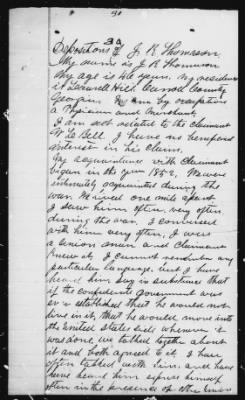 30
30
Depositions of J. K. Thomason
My name is J. K. Thomason
My age is 46 years. My residence
is Laurel Hill Carroll County
Georgia. I am by occupation
a Physician and Merchant.
I am not related to the claimant
W. L. Bell. I have no beneficial
interest in his claim.
My acquaintance with Claimant
began in the year 1852. We were
intimately acquainted during the
war. We lived one mile apart.
I saw him often, very often
during the war. I conversed
with him very often, I was
a union man and claimant
knew it, I cannot remember any
particular language, but I have
heard him say in substance that
if the confederate government was
ever established that he would not
live in it, that he would move into
the United States side wherever it
was done, we talked together about
it and both agreed to it. I have
often talked with him, and have
heard him express himself
often in the presence of the union